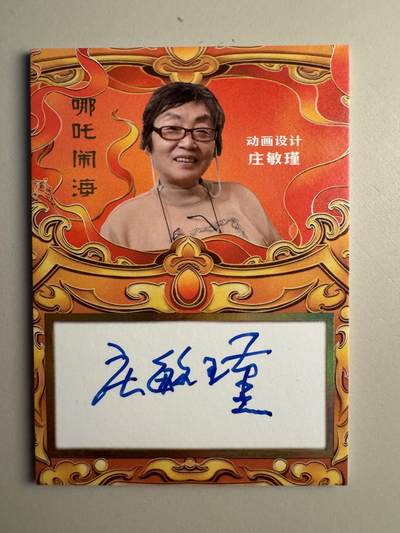 哪吒闹海
动画设计
庄敏瑾
庄敏瑾